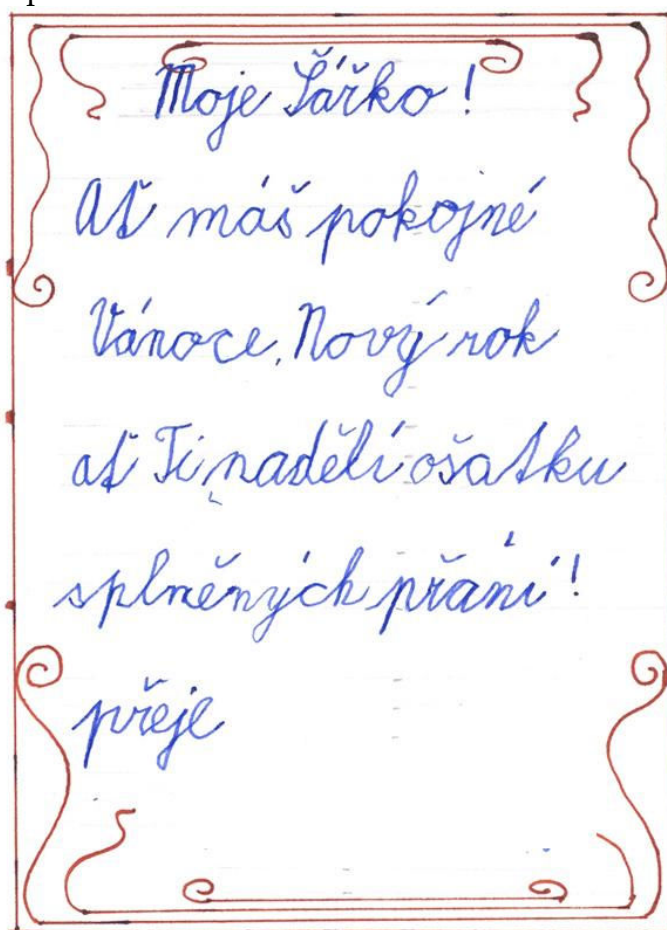 Moje Šářko!
Ať máš pokojné
Vánoce. Nový rok
ať Ti nadělí ošatku
splněných přání!
přeje